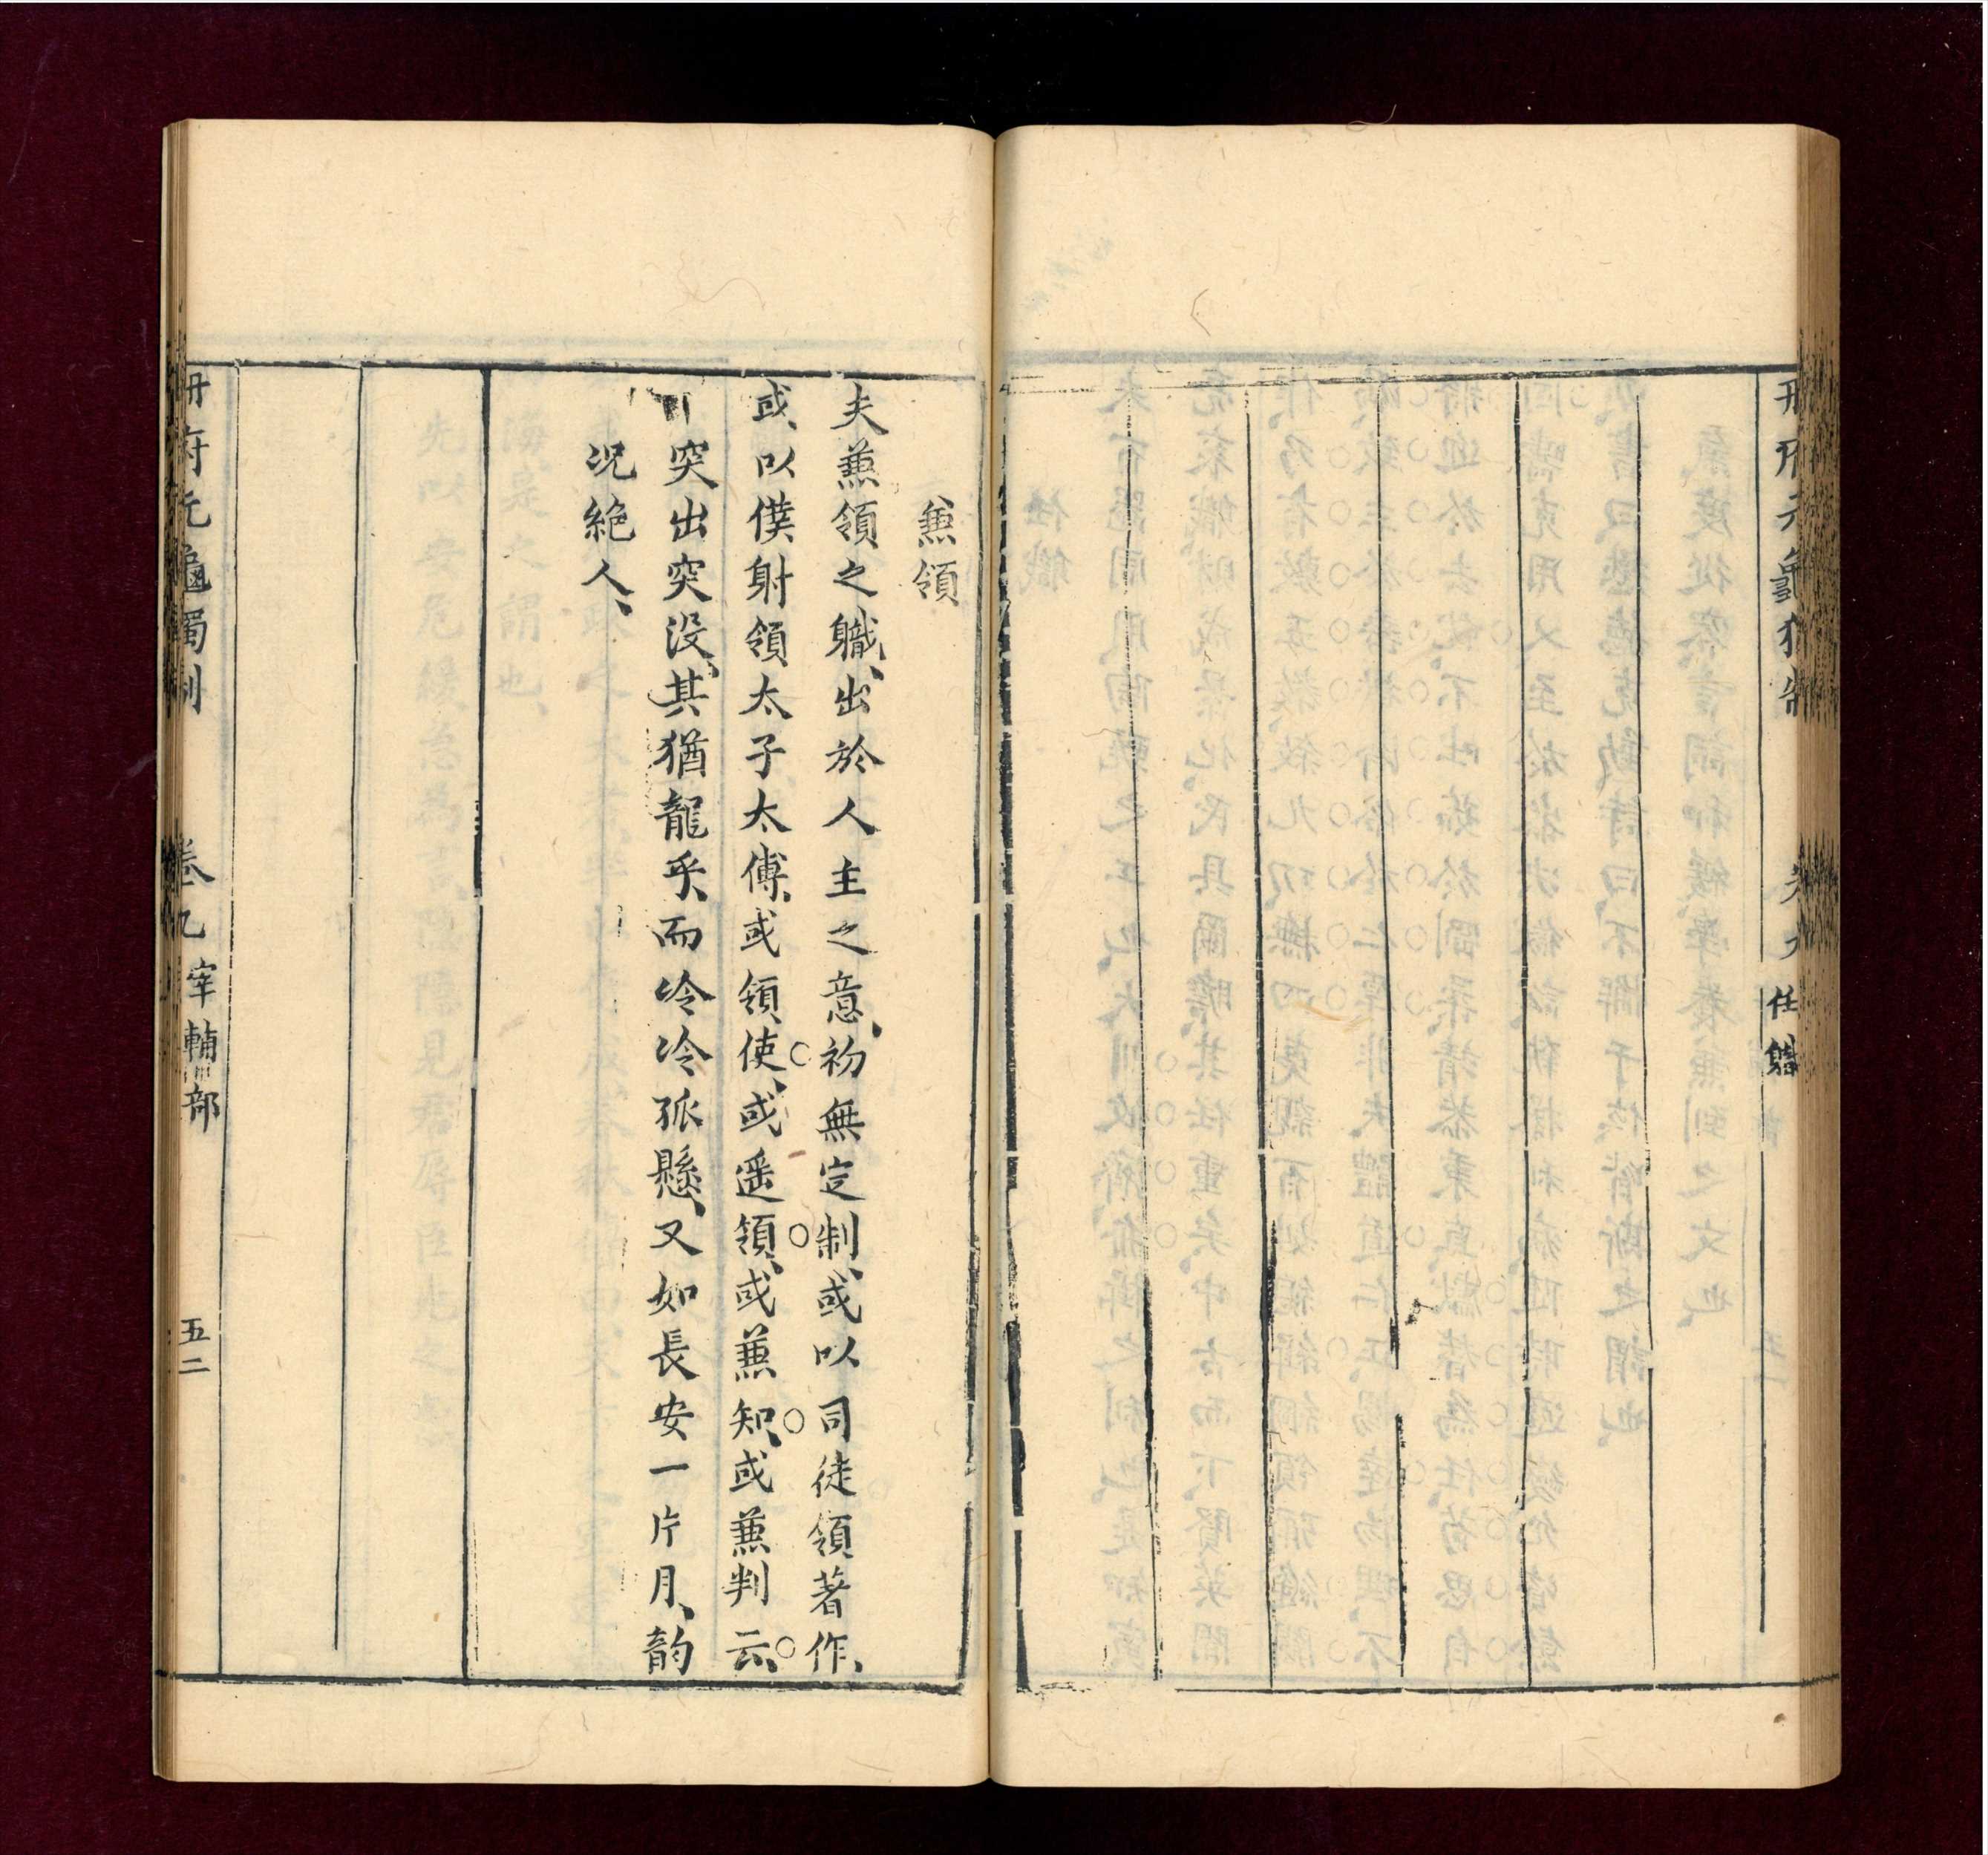 冊府元龜獨制
卷九
任職
兼領
夫蕪領之職、出於人主之意、初無定制、或以司徒領著作、
或、以僕射領太子太傅、或領使、或遥領、或蕪知、或蕪判云、
突出突没、其猶龍乎、而冷冷孤懸、又如長安一片月、韵
况絶人、
冊府元龜獨制
卷九
宰輔部
五二